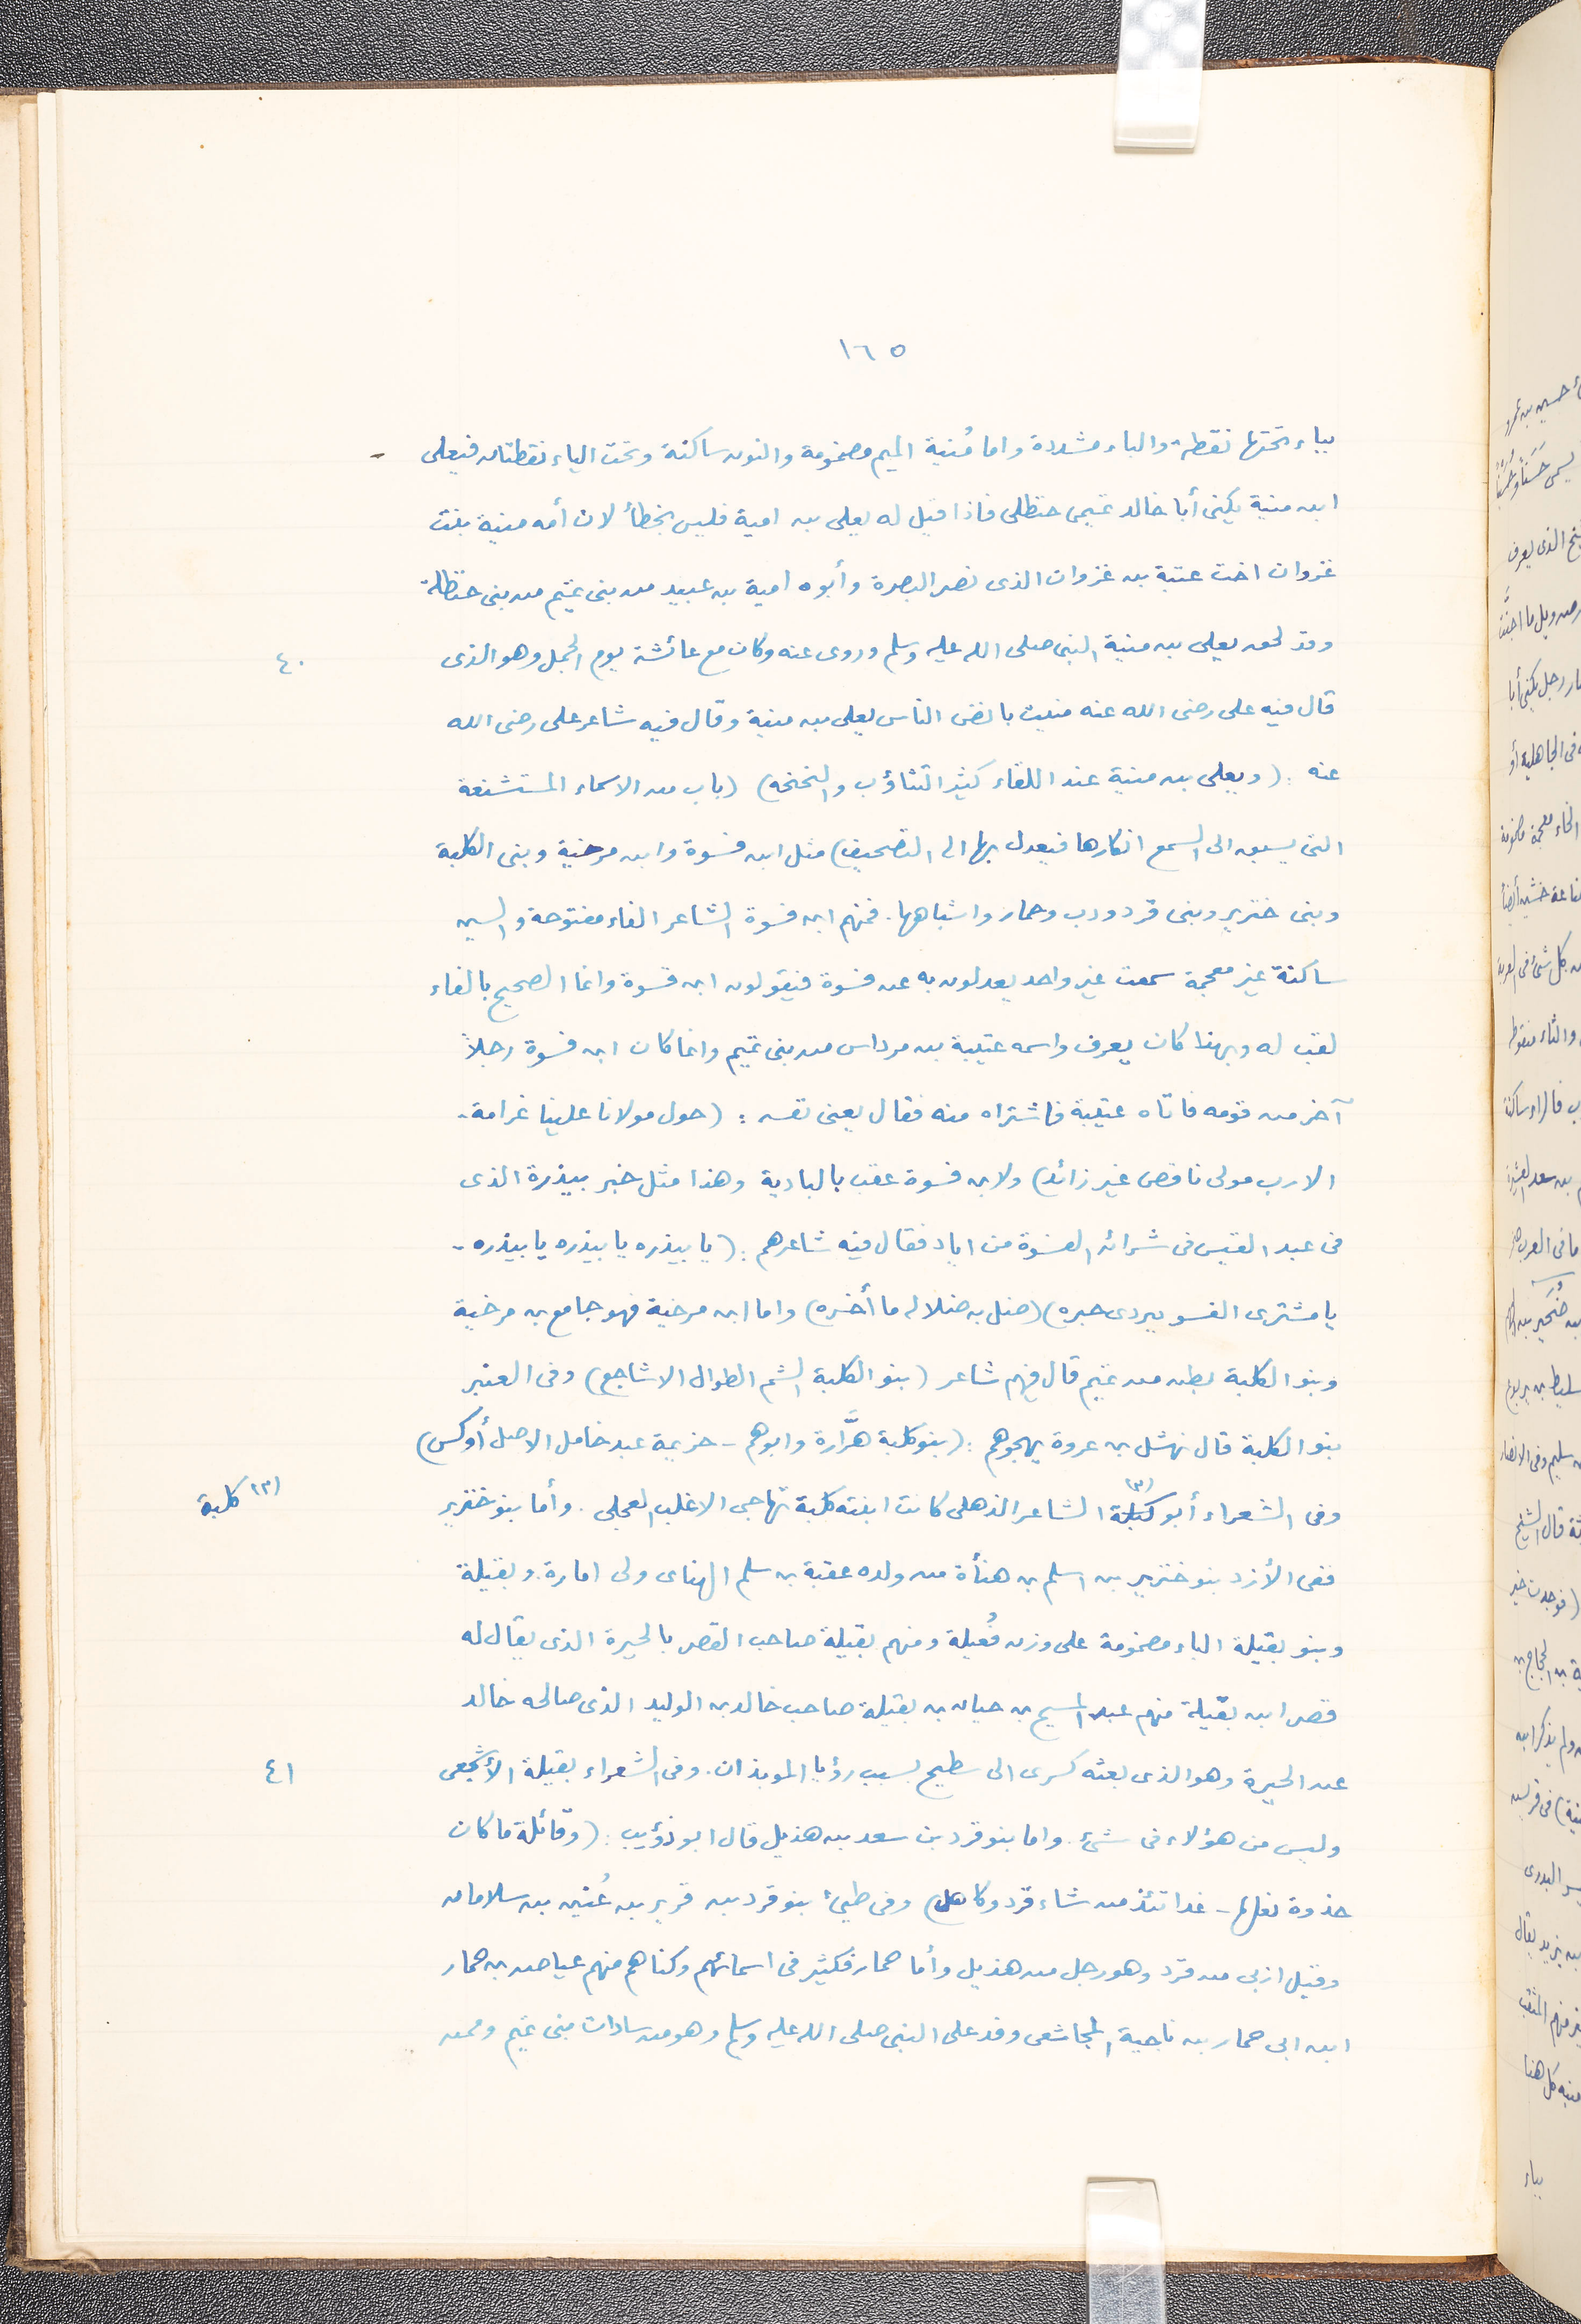 ١٦٥
بباء تحتها نقطة والباء مشددة واما مُنية الميم مضمومة والنون ساكنة وتحت الياء نقطتان فيعلى -
ابن منية يكنى أبا خالد تميمى حنظلى فاذا قيل له يعلى بن امية فليس بخطأ لان أمه منية بنت
غزوان اخت عتبة بن غزوان الذى نصر البصرة وأبوه امية بن عبيد من بنى تميم من بنى حنظلة
وقد لحق يعلى بن منية النبى صلى الله عليه وسلم وروى عنه وكان مع عائشة يوم الجمل وهو الذى
٤٠
قال فيه على رضى الله عنه منيت بانض الناس يعلى بن منية وقال فيه شاعر على رضى الله
عنه : (ويعلى بن منية عند اللقاء كثير التثاؤب والنخنخه) (باب من الاسماء المستشنعة
التى يسبق الى السمع انكارها فيعدل بها الى التصحيف) مثل ابن فسوة وابن مرخية وبنى الكلبة
وبنى خنزير وبنى قرد ودب وحمار واشباهها . فمنهم ابن فسوة الشاعر الفاء مفتوحة والسين
ساكنة غير معجمة سمعت غير واحد يعدلون به عن فسوة فيقولون ابن قسوة وانما الصحيح بالفاء
لقب له وبهذا كان يعرف واسمه عتيبة بن مرداس من بنى تميم وانما كان ابن فسوة رجلاً
آخر من قومه فاتاه عتيبة فاشتراه منه فقال يعنى نفسه : (حول مولانا علينا غرامة -
الارب مولى ناقص غير زائد) ولابن فسوة عقب بالبادية وهذا مثل خبر بيذرة الذى
فى عبد القيس فى شرائه الفسوة من اياد فقال فيه شاعرهم : (يا بيذره يا بيذره يا بيذره -
يا مشترى الفسو ببردى حبره) (ضل به ضلاله ما أخسره) واما ابن مرخية فهو جامع بن مرخية
وبنو الكلبة بطن من تميم قال فيهم شاعر (بنو الكلبة الشم الطوال الاشاجع) وفى العنبر
بنو الكلبة قال نهشل بن عروة يهجوهم : (بنو كلبة هرَّارة وابوهم - خزيمة عبد خامل الاصل أوكس)
وفى الشعراء أبو كبلة (٣) الشاعر الذهلى كانت ابنته كلبة تهاجى الاغلب العجلى . وأما بنو خنزير
(٣) كلبة
ففى الأزد بنو خنزير بن اسلم بن هنأة من ولده عقبة بن سلم الهناى ولى امارة . وبقيلة
وبنو بقيلة الباء مضمومة على وزن فُعيلة ومنهم بقيلة صاحب القصر بالحيرة الذى يقال له
قصر ابن بقيلة منهم عبد المسيح بن حيان بن بقيلة صاحب خالد بن الوليد الذى صالحه خالد
عن الحيرة وهو الذى بعثه كسرى الى سطيح بسبب رؤيا الموبذان . وفى الشعراء بقيلة الأشجعى
٤١
وليس من هؤلاء فى شئ . واما بنو قرد بن سعد بن هذيل قال ابو ذؤيب : (وقائلة ما كان
حذوة نعلها - غدا تئذ من شاء قرد وكاهل) وفى طيئ بنو قرد بن قرير بن عُنين بن سلامان
وقيل ازنى من قرد وهو رجل من هذيل وأما حمار فكثير فى اسمائهم وكناهم منهم عياض بن حمار
ابن ابى حمار بن ناجية المجاشعى وفد على النبى صلى الله عليه وسلم وهو من سادات بنى تميم وممن